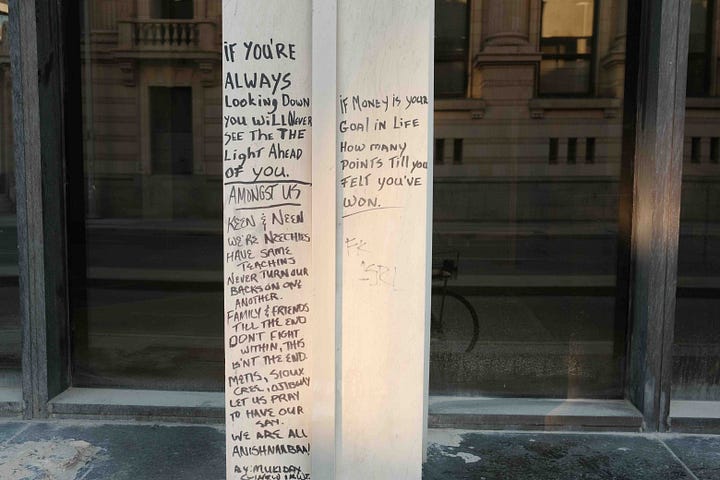 IF YOU'RE
ALWAYS
Looking Down
you WILL Never
SEE THE THE
Light AHead
OF YOU.
AMONGST US
KEEN & NEEN
WE'RE NEECHIES
HAVE SAME
TEACHING
NEVER TURN OUR
BACKS ON ONE
ANOTHER.
FAMILY & FRIENDS
TILL THE END
DON'T FIGHT
WITHIN, THIS
IS'NT THE END.
METIS, SIOUX
CREE, OJIBWAY
LET US PRAY
TO HAVE OUR
SAY.
WE ARE ALL
ANISHNAABAA!
BY:
IF MONEY IS YOUR
GOAL IN LIFE
HOW MANY
POINTS TILL YOU
FELT YOU'VE
WON.